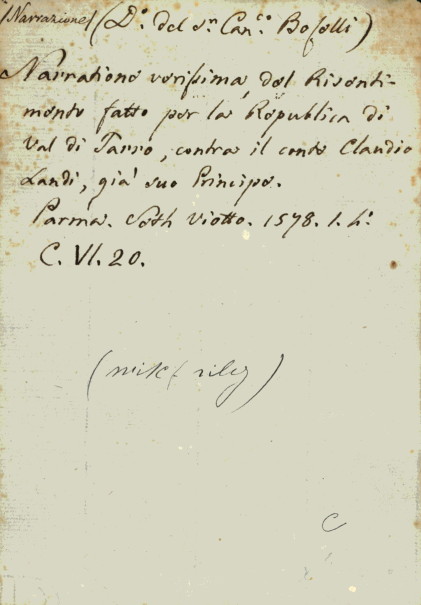 (Narrazione) (D.º del Sr. Can.co Boselli)
Narratione verissima, del Risenti-
mento fatto per la Republica di
Val di Tarro, contra il conte Claudio
Landi, già suo Principe.
Parma. Seth Viotto. 1578. 1. h.º
C. VI. 20.
C